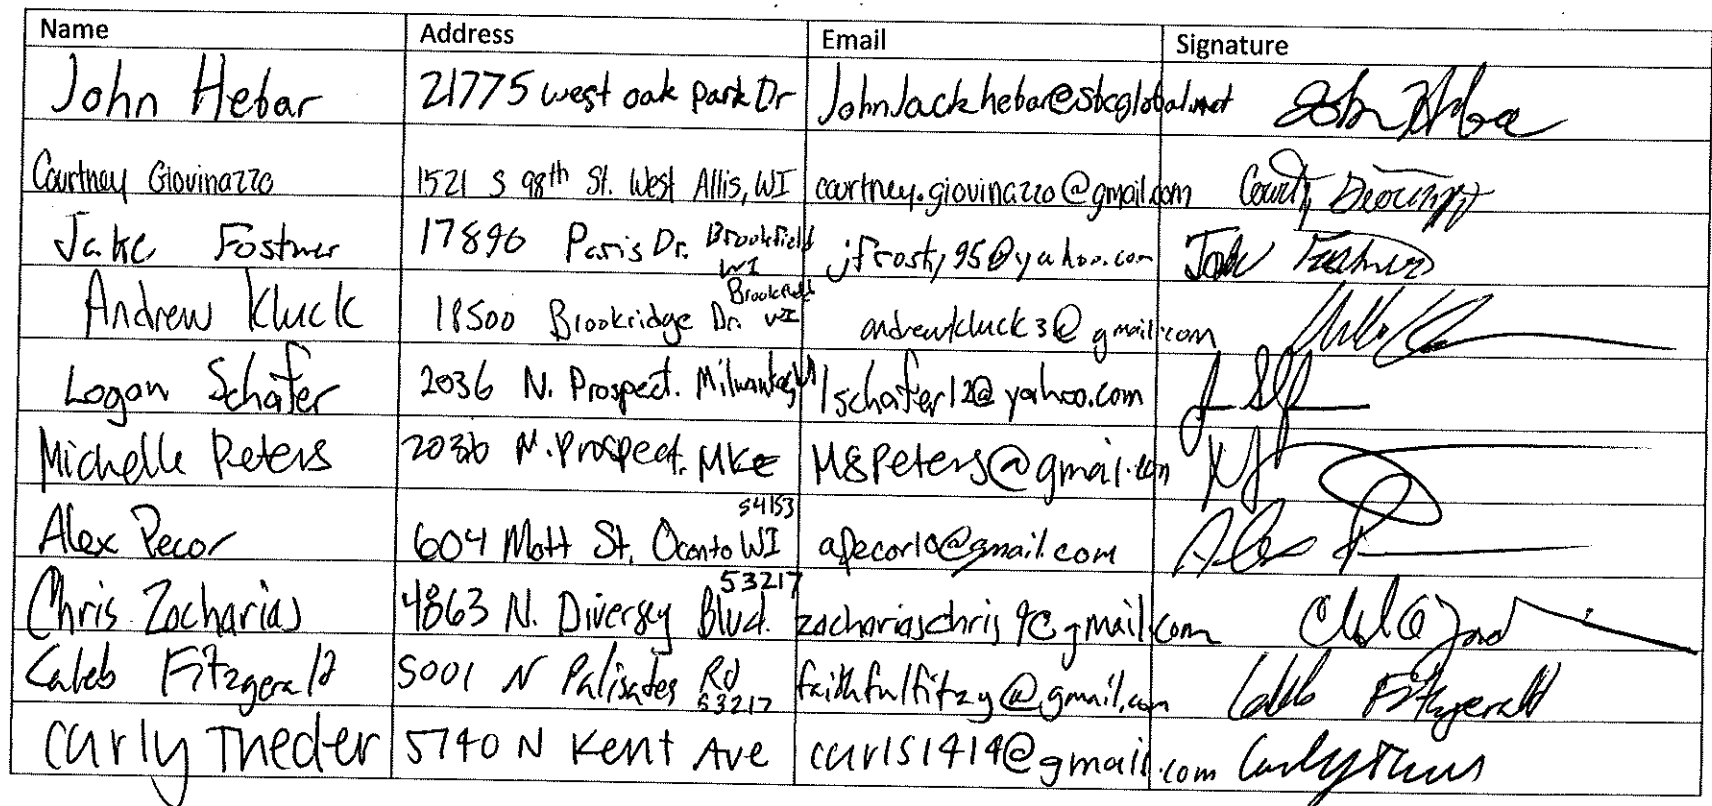 Name Address Email Signature
John Hebar 21775 west oak park Dr JohnJackhebar@sbcglobal.net John Heba
Courtney Giovinazzo 1521 S 98th St. West Allis, WI courtney.giovinazzo@gmail.com
Jake Fostner 17890 Paris Dr. Brookfield WI jfrosty95@yahoo.com
Andrew Kluck 18500 Brookridge Dr. Brookfield WI andrewkluck3@gmail.com
Logan Schafer 2036 N. Prospect. Milwaukee lschafer12@yahoo.com
Michelle Peters 2036 N. Prospect. MKE M8Peters@gmail.com
Alex Pecor 604 Mott St, Oconto WI 54153 apecor10@gmail.com Alex
Chris Zacharias 4863 N. Diversey Blvd. 53217 zachariaschris9@gmail.com
Caleb Fitzgerald 5001 N Palisades Rd 53217 faithfulfitzy@gmail.com Caleb Fitzgerald
Carly Theder 5740 N Kent Ave carls1414@gmail.com Carly